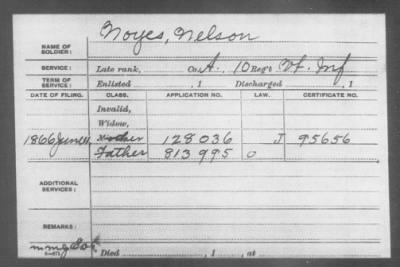 Noyes, Nelson
NAME OF SOLDIER:
SERVICE: Late rank, Co. A, 10 Reg't Vt. Inf
TERM OF SERVICE: Enlisted , 1 Discharged , 1
DATE OF FILING. CLASS. APPLICATION NO. LAW. CERTIFICATE NO.
Invalid,
Widow,
1866 June 11, Mother 128 036 J 95656
Father 813 995 O
ADDITIONAL SERVICES:
REMARKS:
Died , 1 , at